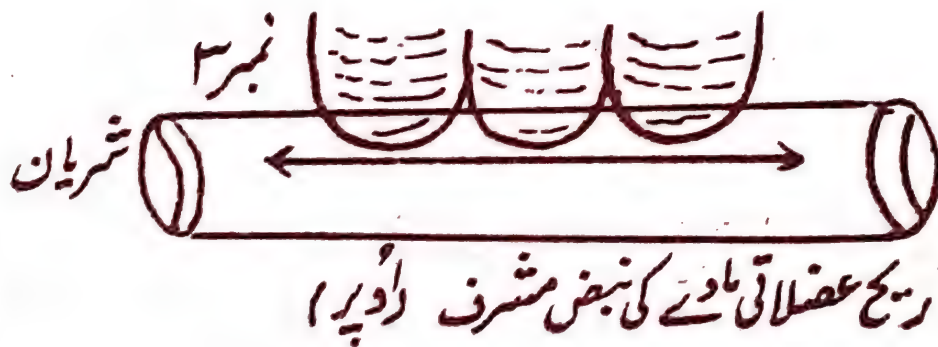 نمبر ۳
شریان
ریح عضلاتی مادے کی نبض مشرف (اُوپر)